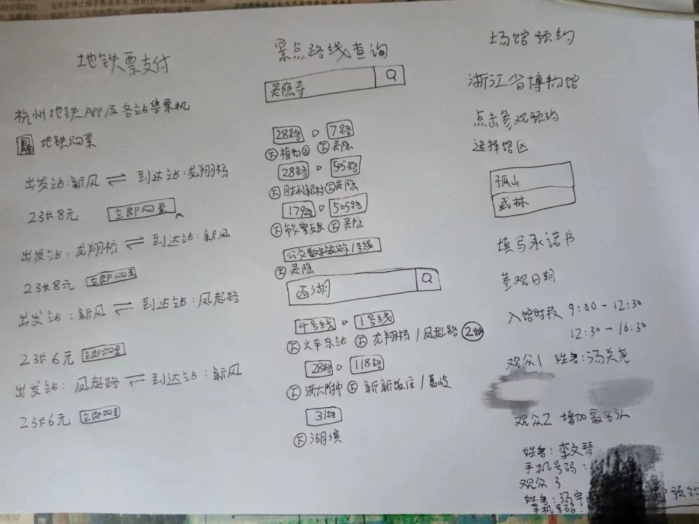 地铁票支付
杭州地铁APP及各站售票机
地铁购票
出发站:新风 ⇌ 到达站:龙翔桥
23张8元 立即购票
出发站:龙翔桥 ⇌ 到达站:新风
23张8元 立即购票
出发站:新风 ⇌ 到达站:凤起路
23张6元 立即购票
出发站:凤起路 ⇌ 到达站:新风
23张6元 立即购票
景点路线查询
灵隐寺 Q
28路 7路
下植物园 下灵隐
28路 505路
下灵隐
505路
下灵隐
1号线
下灵隐
西湖 Q
4号线 1号线
下火车东站 下龙翔桥/凤起路
28路 118路
下浙大附中 下新新饭店/葛岭
31路
下湖滨
场馆预约
浙江省博物馆
点击参观预约
选择馆区
孤山
武林
填写承诺书
参观日期
入馆时段 9:00-12:30
12:30-16:30
观众1 姓名:
观众2 增加
姓名:李文琴
手机号码:
观众3
姓名:
手机号码:
预约